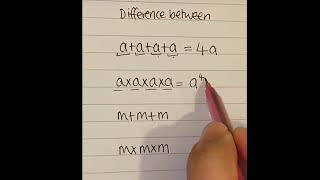 Difference between
a+a+a+a = 4a
a×a×a×a = a⁴
m+m+m
m×m×m